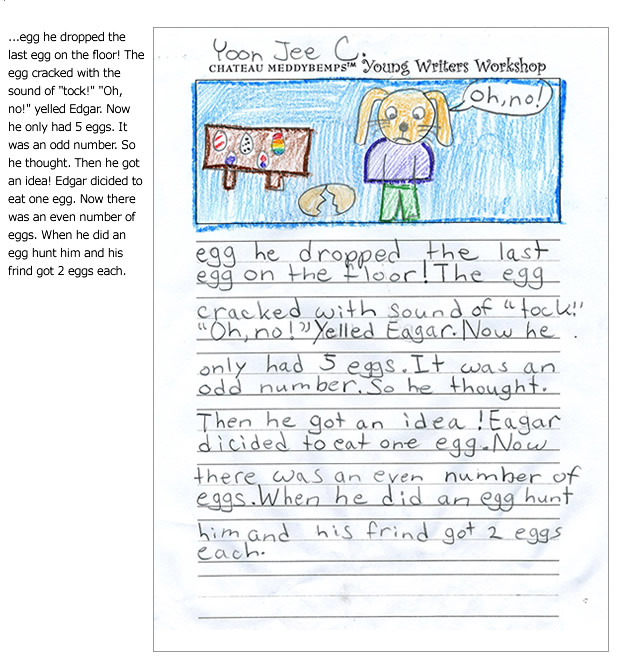 ...egg he dropped the
last egg on the floor! The
egg cracked with the
sound of "tock!" "Oh,
no!" yelled Edgar. Now
he only had 5 eggs. It
was an odd number. So
he thought. Then he got
an idea! Edgar dicided to
eat one egg. Now there
was an even number of
eggs. When he did an
egg hunt him and his
frind got 2 eggs each.
Yoon Jee C.
CHATEAU MEDDYBEMPS™ Young Writers Workshop
Oh, no!
egg he dropped the last
egg on the floor! The egg
cracked with sound of "tock!"
"Oh, no!" Yelled Eagar. Now he
only had 5 eggs. It was an
odd number. So he thought.
Then he got an idea! Eagar
dicided to eat one egg. Now
there was an even number of
eggs. When he did an egg hunt
him and his frind got 2 eggs
each.